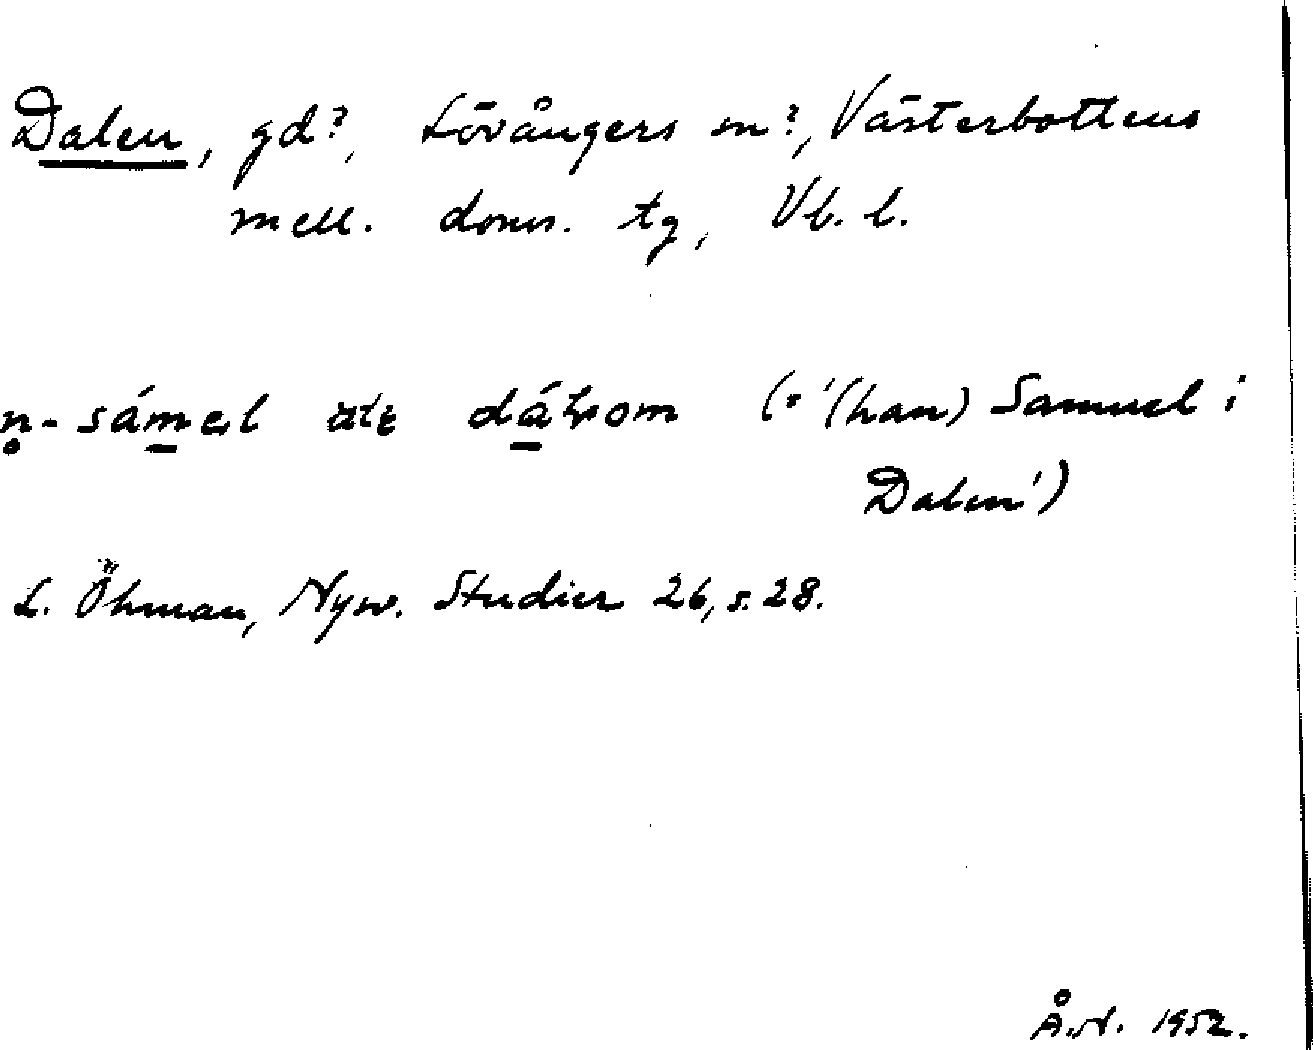 Dalen, gd?, Lövångers sn?, Västerbottens
mell. doms. tg, Vb. l.
n̥-sámel ate dáɽom (= '(han) Samuel i
Dalen')
L. Öhman, Nysv. Studier 26, s. 28.
Å.N. 1952.